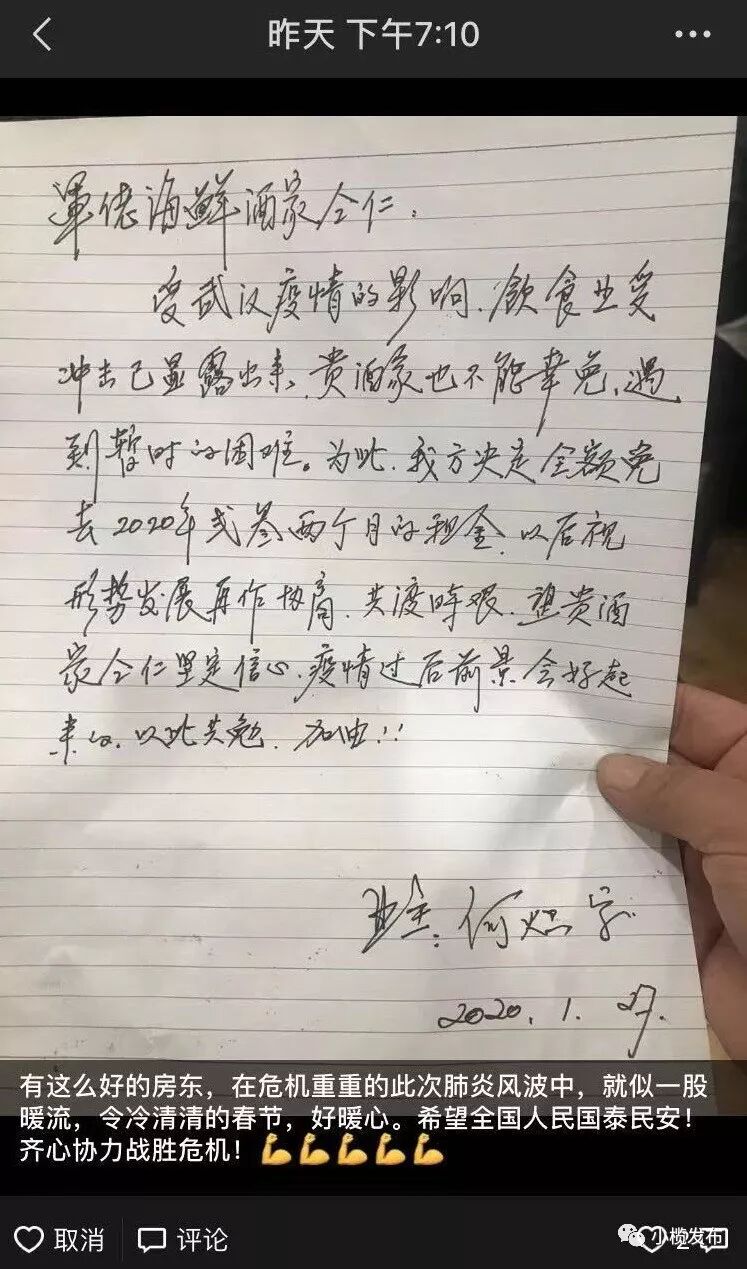 昨天 下午7:10
軍佬海鲜酒家仝仁:
受武汉疫情的影响、飲食业受
冲击已显露出来、贵酒家也不能幸免、遇
到暂时的困难。为此、我方决定全额免
去2020年弍叁两个月的租金、以后视
形势发展再作协商、共渡時艰、望贵酒
家仝仁坚定信心、疫情过后前景会好起
来的、以此共勉、加油!!
业主:何 宗
2020.1.27.
有这么好的房东，在危机重重的此次肺炎风波中，就似一股
暖流，令冷清清的春节，好暖心。希望全国人民国泰民安！
齐心协力战胜危机！💪💪💪💪💪
取消 评论 小榄发布 2